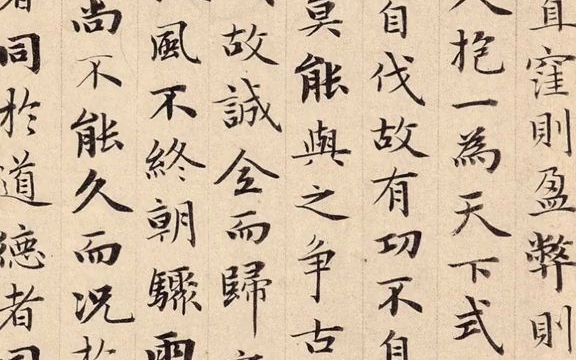 直窪則盈弊則
人抱一為天下式
自伐故有功不自
莫能與之争古
故誠全而歸
風不終朝驟雨
尚不能久而况於
者同於道德者同